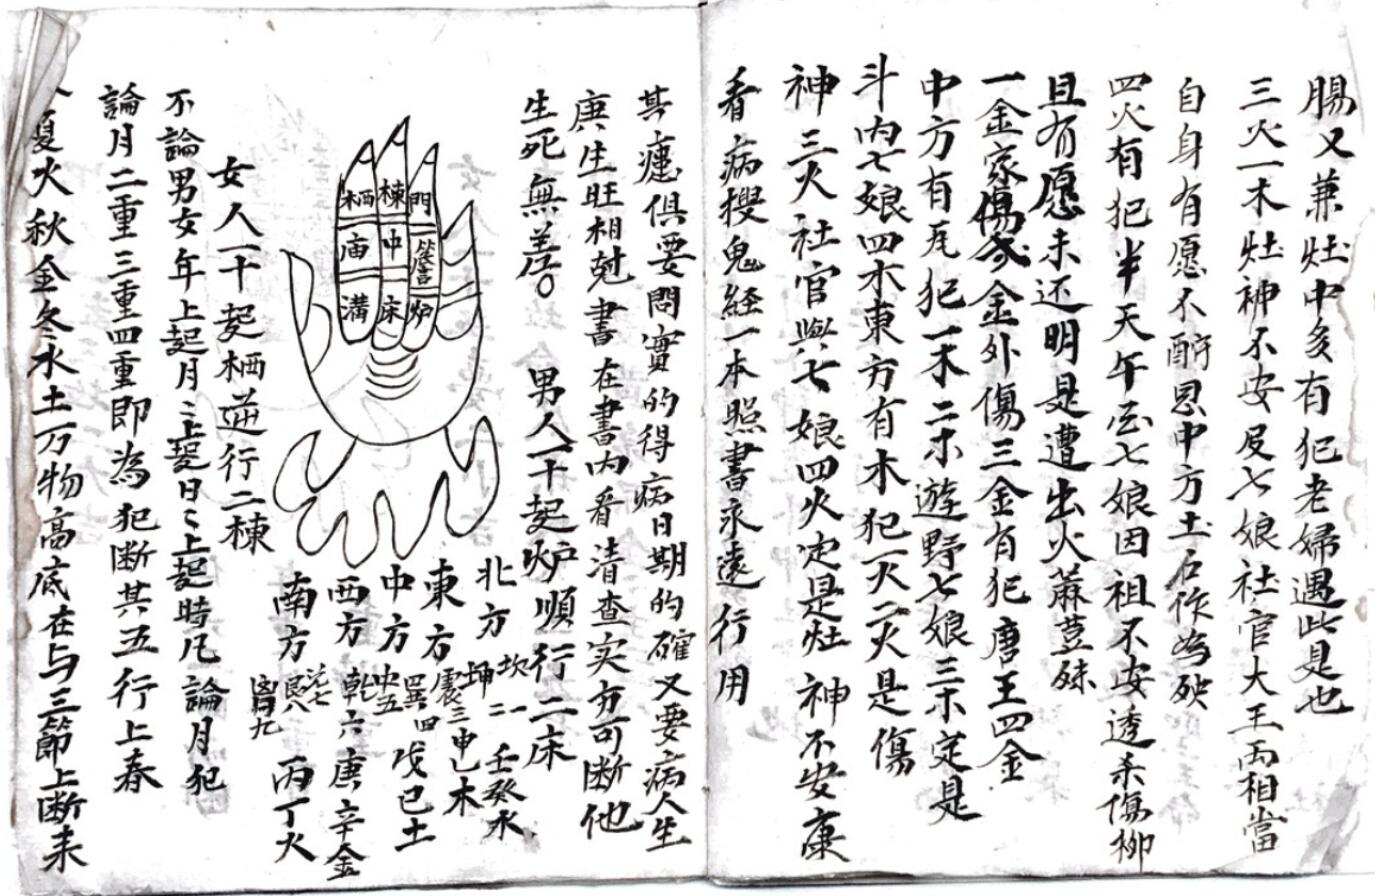 腸又兼灶中多有犯老婦遇此是也
三火一木灶神不安及七娘社官大王两相當
自身有愿不酧恩中方土石作為殃
四火有犯半天午因祖不安透杀傷柳
且有愿未还明是遭出火蔴荳殊
一金家傷式金外傷三金有犯唐王四金
中方有瓦犯一木二木遊野七娘三木定是
斗内七娘四木東方有木犯一火二火是傷
神三火社官與七娘四火定是灶神不安康
看病搜鬼経一本照書永遠行用
其瘧俱要問實的得病日期的確又要病人生
庚生旺相尅書在書内看清查实方可断他
生死無差。
男人一十起炉順行二床
門
簷
炉
棟
中
床
栖
庙
溝
北方坎一坤二壬癸水
東方震三巽四甲乙木
中方中五戊己土
西方乾六兊七庚辛金
南方艮八離九丙丁火
女人一十起栖逆行二棟
不論男女年上起月月上起日日上起時凡論月犯
論月二重三重四重即為犯断其五行上春
夏火秋金冬水土万物高底在与三節上断来